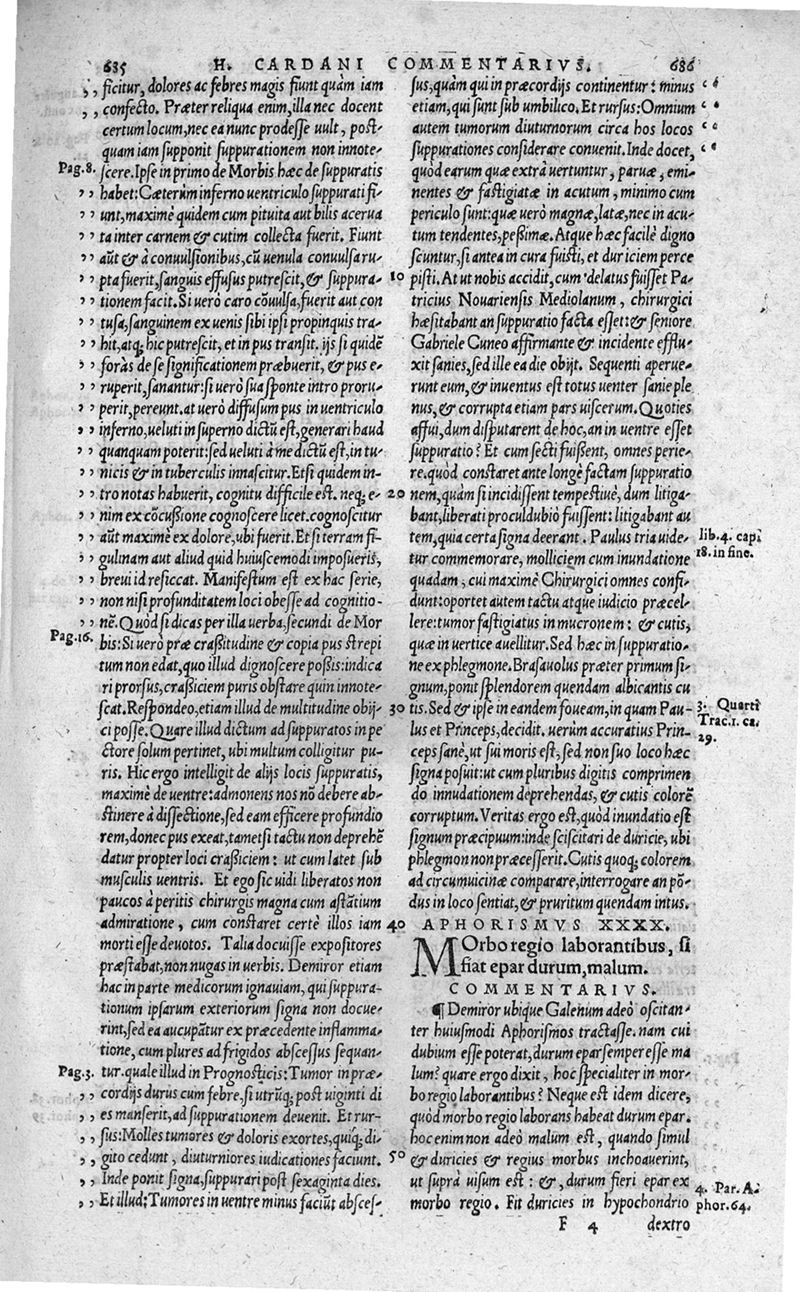 635 H. CARDANI COMMENTARIVS. 686
,, ficitur, dolores ac febres magis fiunt quàm iam
,, confecto. Præter reliqua enim, illa nec docent
certum locum, nec ea nunc prodesse uult, post-
quam iam supponit suppurationem non innote-
Pag. 8. scere. Ipse in primo de Morbis hæc de suppuratis
,, habet: Cæterùm inferno uentriculo suppurati fi-
,, unt, maximè quidem cum pituita aut bilis acerua
,, ta inter carnem & cutim collecta fuerit. Fiunt
,, aũt & à conuulsionibus, cũ uenula conuulsa ru-
,, pta fuerit, sanguis effusus putrescit, & suppura- 10
,, tionem facit. Si uerò caro cõuulsa, fuerit aut con
,, tusa, sanguinem ex uenis sibi ipsi propinquis tra-
,, hit, atq; hic putrescit, et in pus transit. ijs si quidẽ
,, foràs de se significationem præbuerit, & pus e-
,, ruperit, sanantur: si uerò sua sponte intro proru-
,, perit, pereunt. at uerò diffusum pus in uentriculo
,, inferno, ueluti in superno dictũ est, generari haud
,, quanquam poterit: sed ueluti à me dictũ est, in tu-
,, nicis & in tuberculis innascitur. Etsi quidem in-
,, tro notas habuerit, cognitu difficile est. neq; e- 20
,, nim ex cõcussione cognoscere licet. cognoscitur
,, aũt maximè ex dolore, ubi fuerit. Et si terram fi-
,, gulinam aut aliud quid huiuscemodi imposueris,
,, breui id resiccat. Manifestum est ex hac serie,
,, non nisi profunditatem loci obesse ad cognitio-
,, nẽ. Quòd si dicas per illa uerba, secundi de Mor
Pag. 16. bis: Si uerò præ crassitudine & copia pus strepi
tum non edat, quo illud dignoscere possis: indica
ri prorsus, crassiciem puris obstare quin innote-
scat. Respondeo, etiam illud de multitudine obij- 30
ci posse. Quare illud dictum ad suppuratos in pe
ctore solum pertinet, ubi multum colligitur pu-
ris. Hic ergo intelligit de alijs locis suppuratis,
maximè de uentre: admonens nos nõ debere ab-
stinere à dissectione, sed eam efficere profundio
rem, donec pus exeat, tametsi tactu non deprehẽ
datur propter loci crassiciem: ut cum latet sub
musculis uentris. Et ego sic uidi liberatos non
paucos à peritis chirurgis magna cum astãtium
admiratione, cum constaret certè illos iam 40
morti esse deuotos. Talia docuisse expositores
præstabat, non nugas in uerbis. Demiror etiam
hac in parte medicorum ignauiam, qui suppura-
tionum ipsarum exteriorum signa non docue-
rint, sed ea aucupãtur ex præcedente inflamma-
tione, cum plures ad frigidos abscessus sequan-
Pag. 3. tur. quale illud in Prognosticis: Tumor in præ-
,, cordijs durus cum febre, si utrũq; post uiginti di
,, es manserit, ad suppurationem deuenit. Et rur-
,, sus: Molles tumores & doloris exortes, quiq; di-
,, gito cedunt, diuturniores iudicationes faciunt. 50
,, Inde ponit signa, suppurari post sexaginta dies.
,, Et illud: Tumores in uentre minus faciũt absces-
sus, quàm qui in præcordijs continentur: minus “
etiam, qui sunt sub umbilico. Et rursus: Omnium “
autem tumorum diuturnorum circa hos locos “
suppurationes considerare conuenit. Inde docet, “
quòd earum quæ extrà uertuntur, paruæ, emi-
nentes & fastigiatæ in acutum, minimo cum
periculo sunt: quæ uerò magnæ, latæ, nec in acu-
tum tendentes, pessimæ. Atque hæc facilè digno
scuntur, si antea in cura fuisti, et duriciem perce
pisti. At ut nobis accidit, cum delatus fuisset Pa-
tricius Nouariensis Mediolanum, chirurgici
hæsitabant an suppuratio facta esset: & seniore
Gabriele Cuneo affirmante & incidente efflu-
xit sanies, sed ille ea die obijt. Sequenti aperue-
runt eum, & inuentus est totus uenter sanie ple
nus, & corrupta etiam pars uiscerum. Quoties
affui, dum disputarent de hoc, an in uentre esset
suppuratio? Et cum secti fuissent, omnes perie-
re. quòd constaret ante longè factam suppuratio
nem, quàm si incidissent tempestiuè, dum litiga-
bant, liberati proculdubiò fuissent: litigabant au
tem, quia certa signa deerant. Paulus tria uide- lib. 4. capi
tur commemorare, molliciem cum inundatione 18. in fine.
quadam, cui maximè Chirurgici omnes confi-
dunt: oportet autem tactu atque iudicio præcel-
lere: tumor fastigiatus in mucronem: & cutis,
quæ in uertice auellitur. Sed hæc in suppuratio-
ne ex phlegmone. Brasauolus præter primum si-
gnum, ponit splendorem quendam albicantis cu
tis. Sed & ipse in eandem foueam, in quam Pau- 3. Quarti
lus et Princeps, decidit. uerùm accuratius Prin- Trac. 1. ca.
ceps sanè, ut sui moris est, sed non suo loco hæc 29.
signa posuit: ut cum pluribus digitis comprimen
do innudationem deprehendas, & cutis colorẽ
corruptum. Veritas ergo est, quòd inundatio est
signum præcipuum: inde sciscitari de duricie, ubi
phlegmon non præcesserit. Cutis quoq; colorem
ad circumuicinæ comparare, interrogare an põ-
dus in loco sentiat, & pruritum quendam intus.
APHORISMVS XXXX.
MOrbo regio laborantibus, si
fiat epar durum, malum.
COMMENTARIVS.
¶ Demiror ubique Galenum adeò oscitan-
ter huiusmodi Aphorismos tractasse. nam cui
dubium esse poterat, durum epar semper esse ma
lum? quare ergo dixit, hoc specialiter in mor-
bo regio laborantibus? Neque est idem dicere,
quòd morbo regio laborans habeat durum epar.
hoc enim non adeò malum est, quando simul
& duricies & regius morbus inchoauerint,
ut suprà uisum est: &, durum fieri epar ex 4. Par. A-
morbo regio. Fit duricies in hypochondrio phor. 64.
F 4 dextro